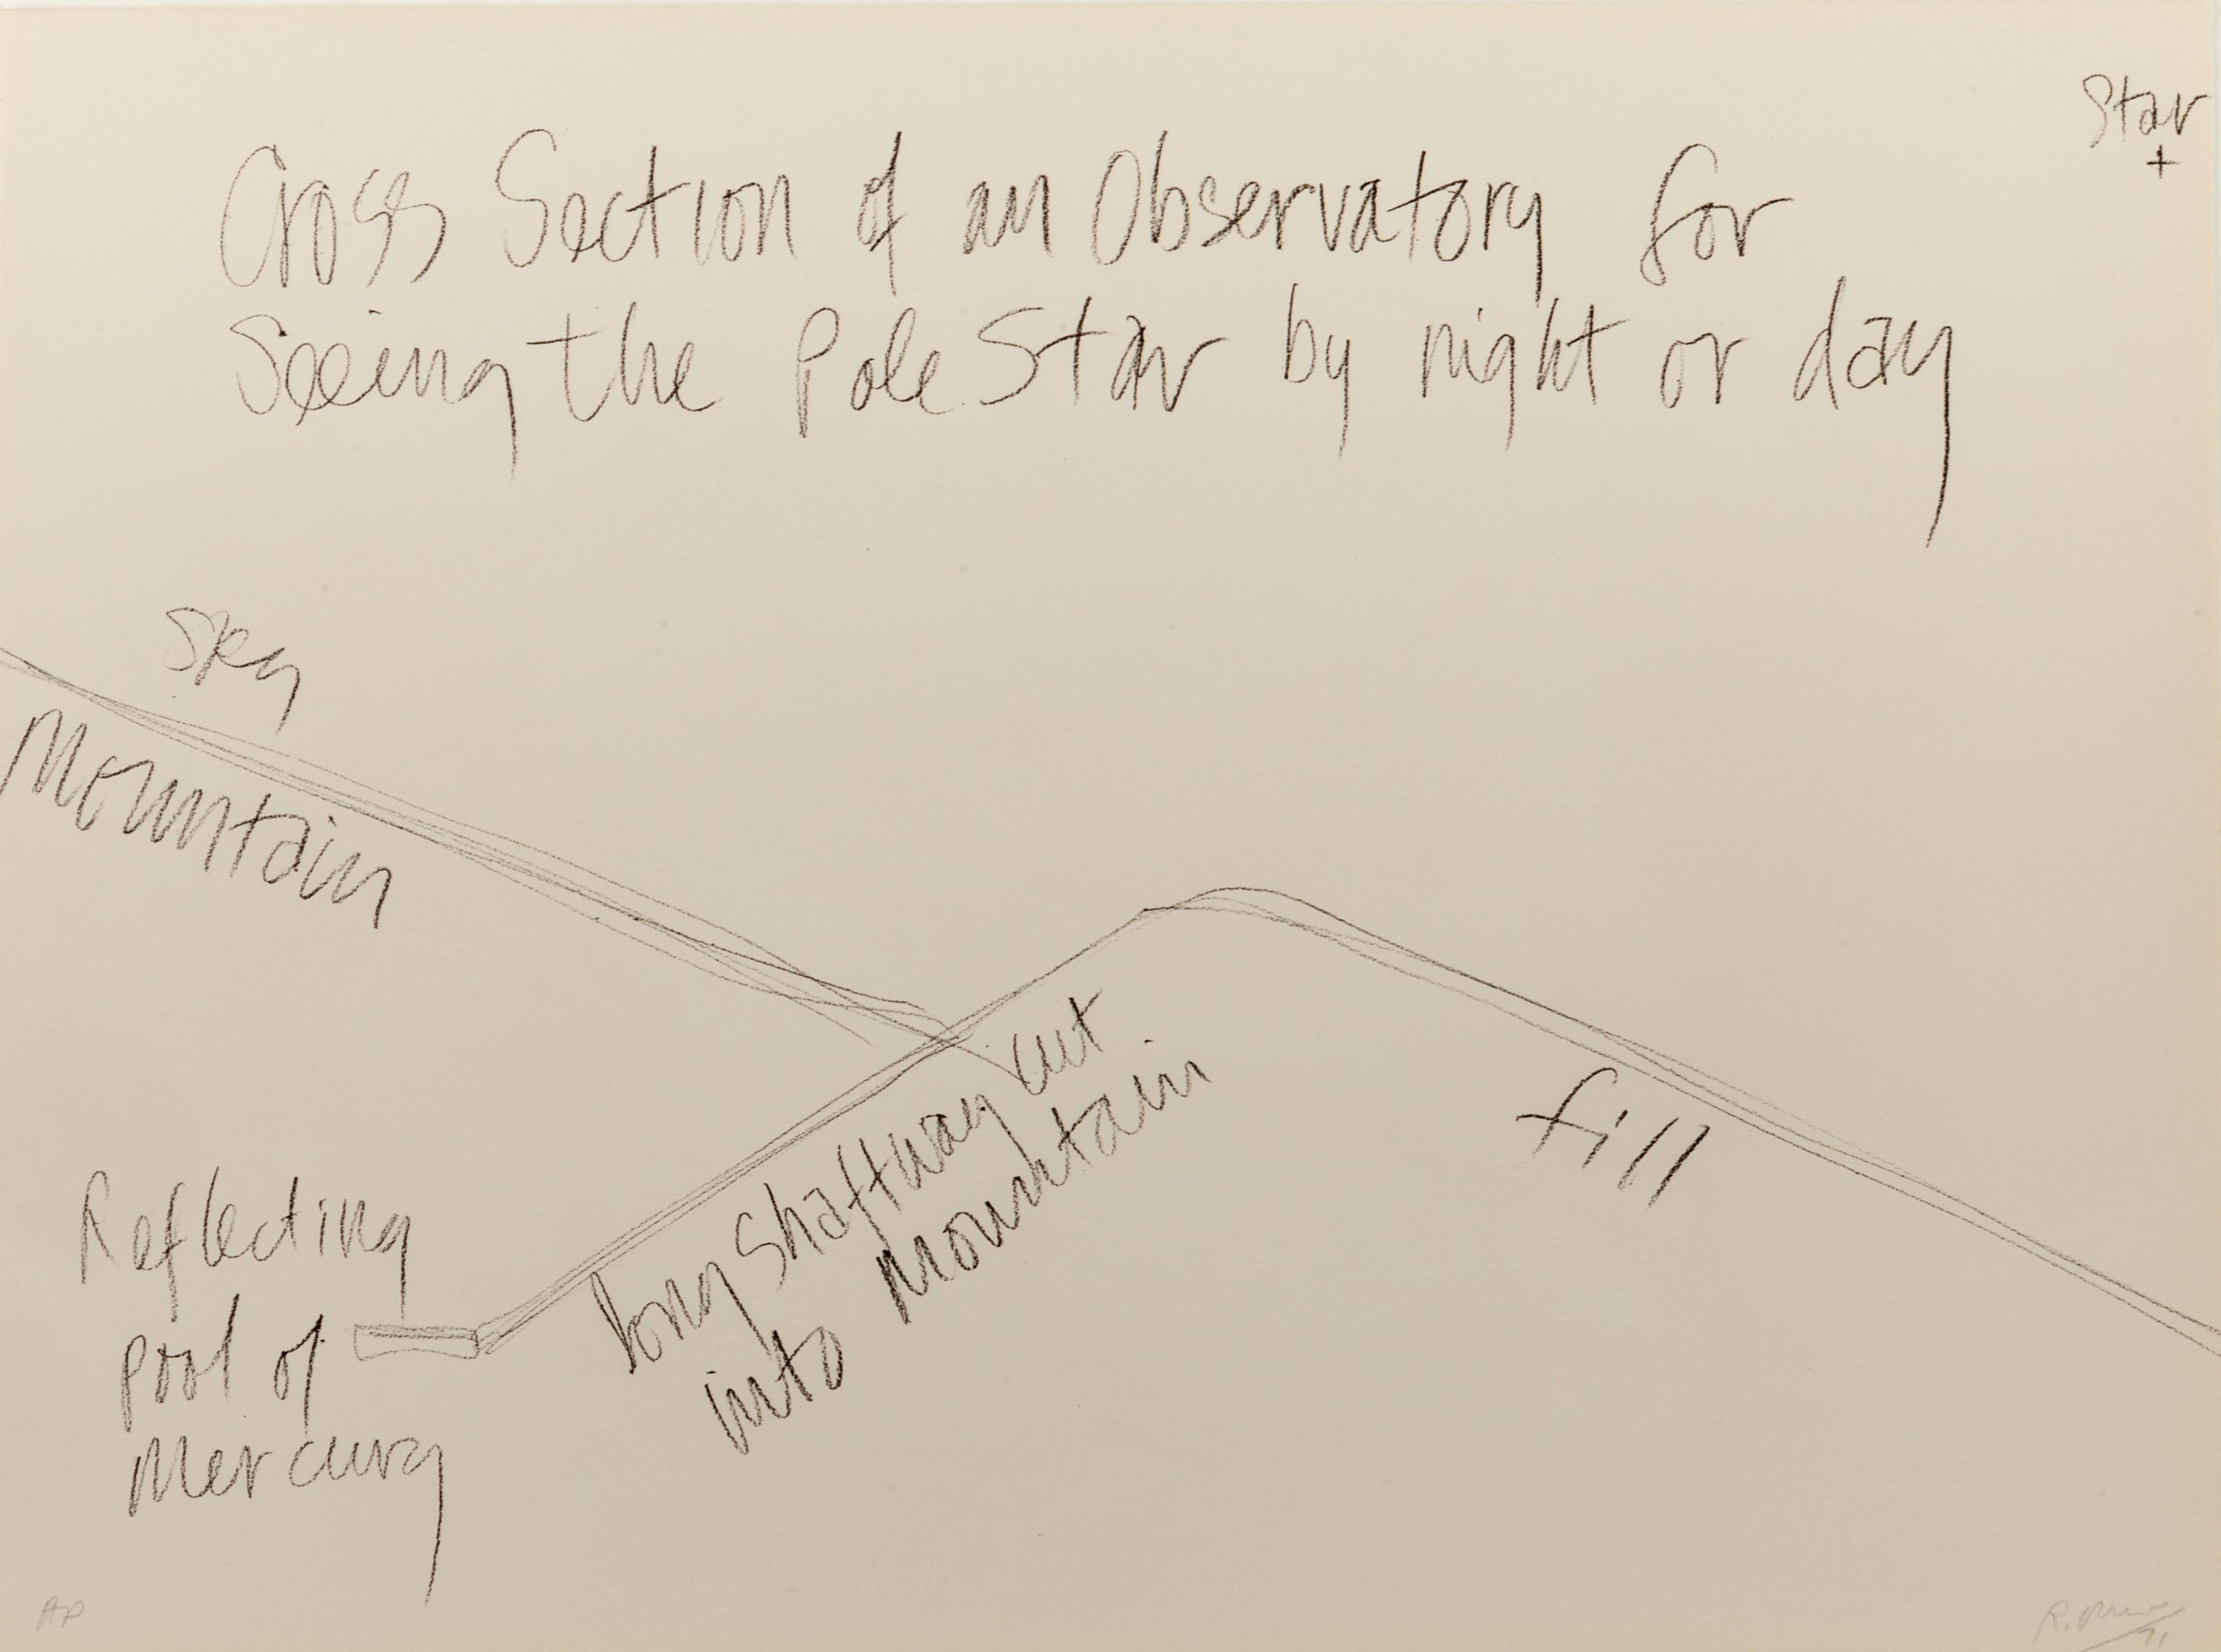 Star
+
Cross Section of an Observatory for
Seeing the Pole Star by night or day
Sky
Mountain
long Shaftway cut
into mountain
fill
Reflecting
pool of
Mercury
AP
R.